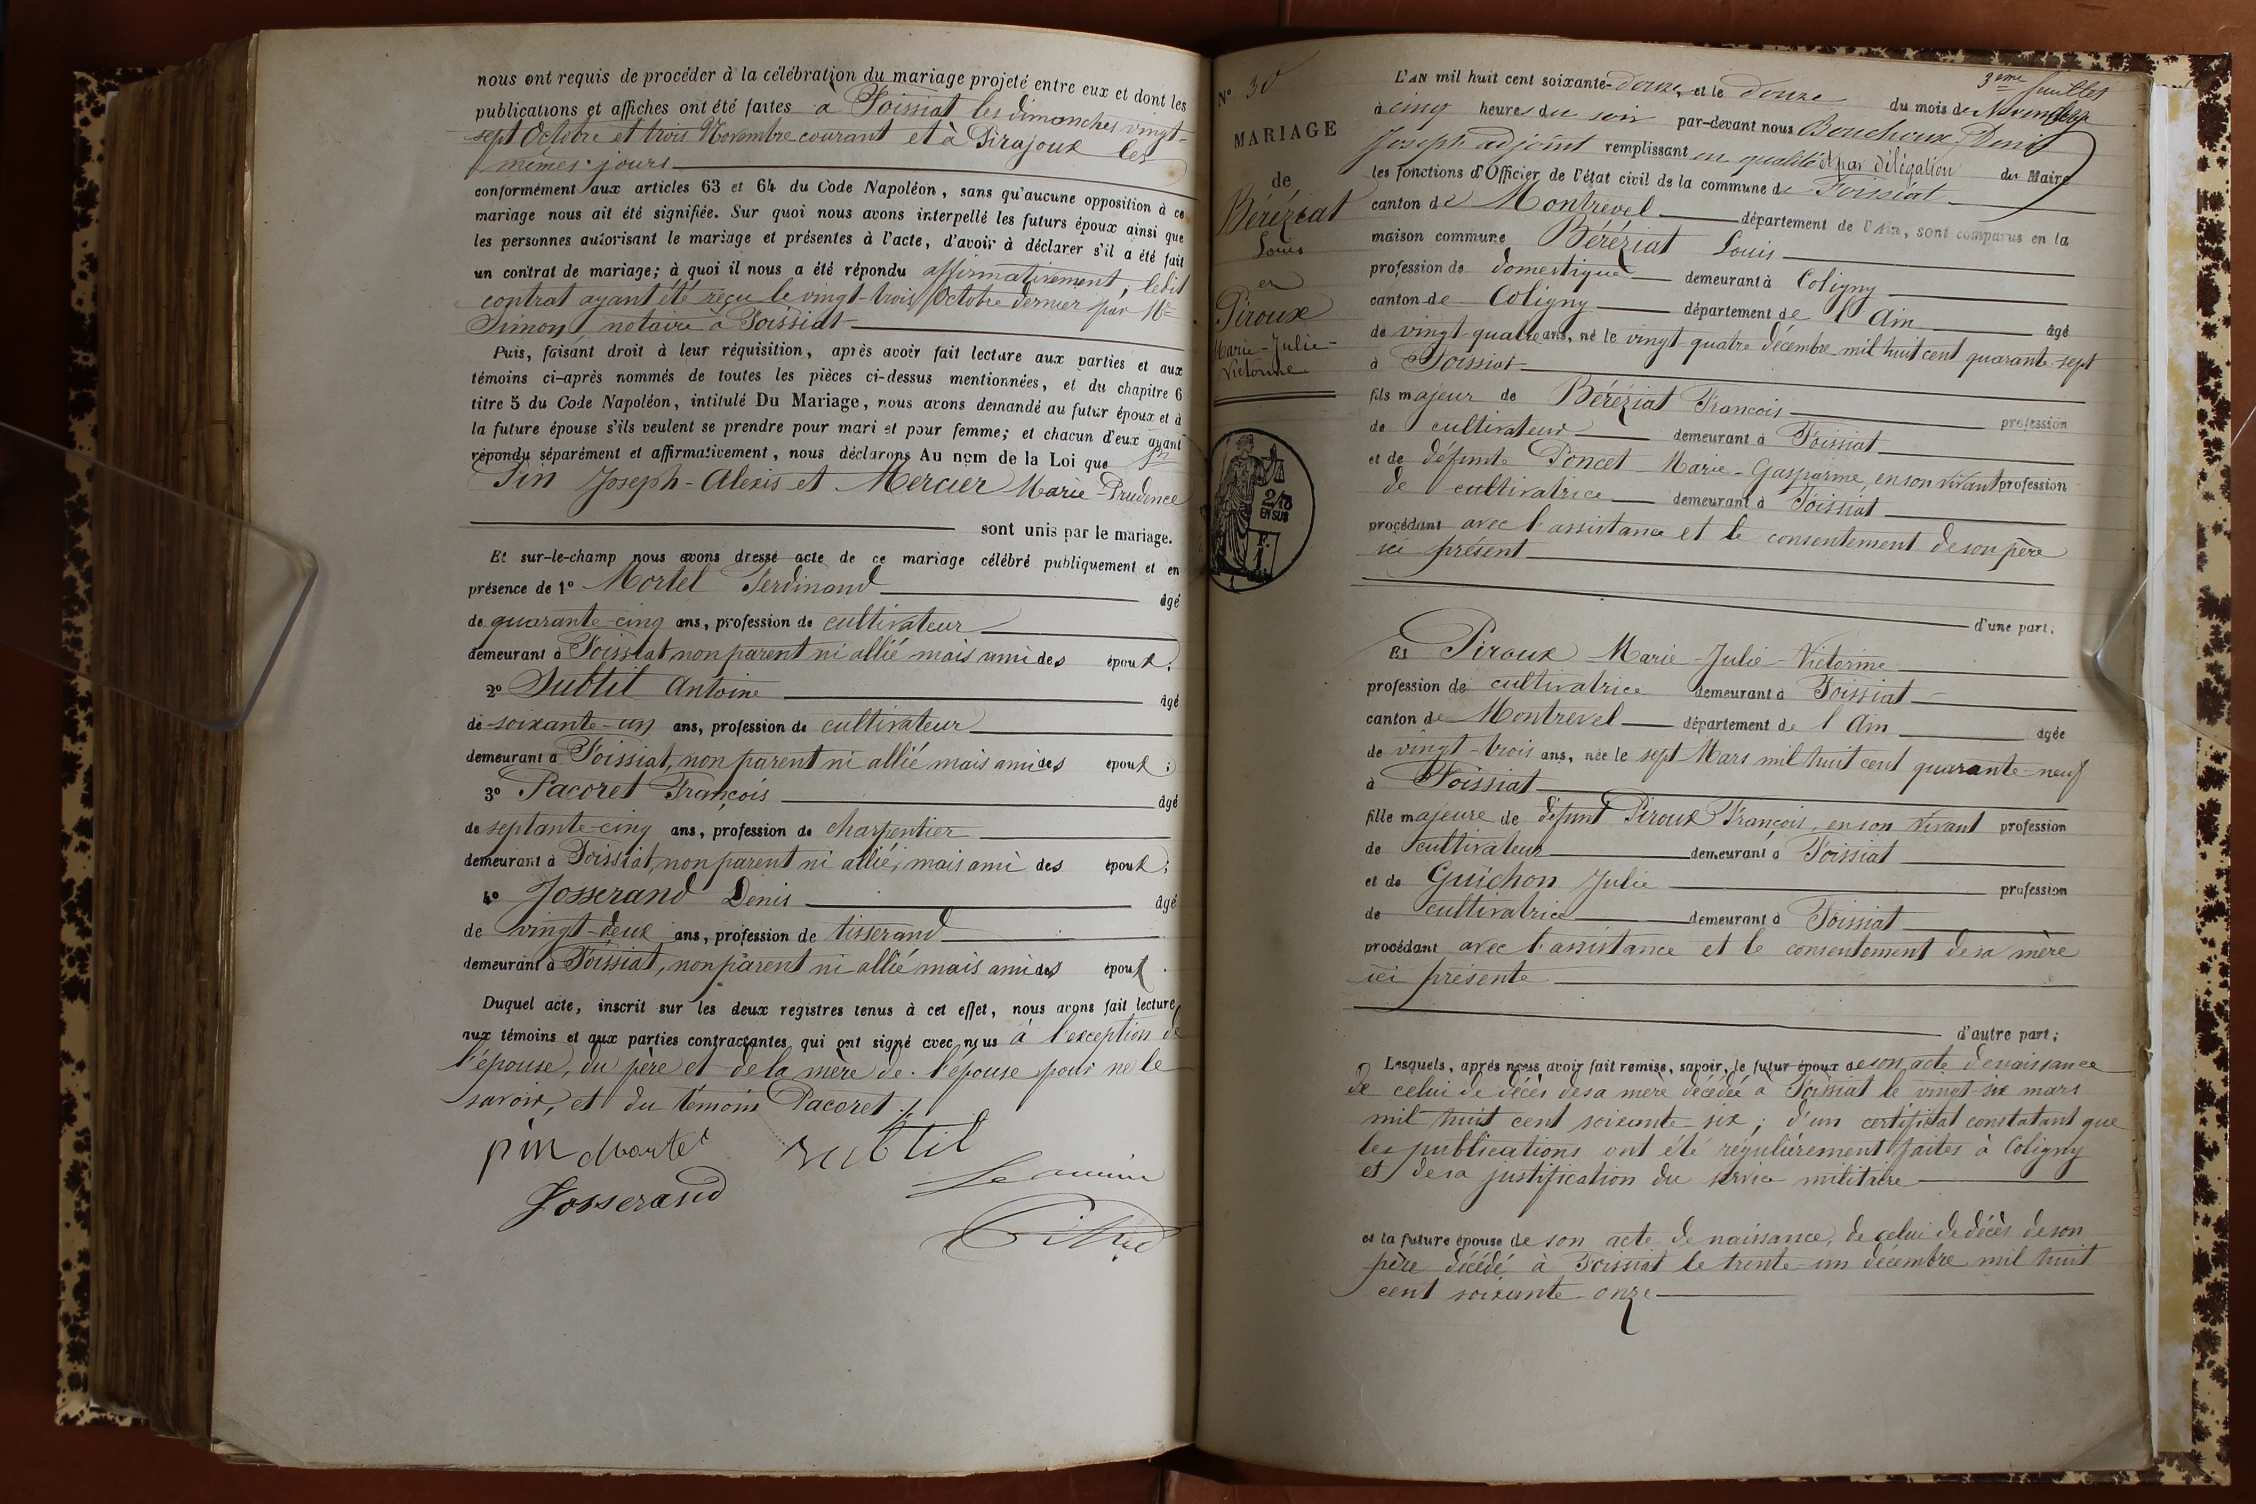 nous ont requis de procéder à la célébration du mariage projeté entre eux et dont les
publications et affiches ont été faites à Foissiat les dimanches vingt-
sept Octobre et trois Novembre courant et à Pirajoux les
mêmes jours
conformément aux articles 63 et 64 du Code Napoléon, sans qu'aucune opposition à ce
mariage nous ait été signifiée. Sur quoi nous avons interpellé les futurs époux ainsi que
les personnes autorisant le mariage et présentes à l'acte, d'avoir à déclarer s'il a été fait
un contrat de mariage; à quoi il nous a été répondu affirmativement, ledit
contrat ayant été reçu le vingt-trois Octobre dernier par Me
Simon notaire à Foissiat
Puis, faisant droit à leur réquisition, après avoir fait lecture aux parties et aux
témoins ci-après nommés de toutes les pièces ci-dessus mentionnées, et du chapitre 6
titre 5 du Code Napoléon, intitulé Du Mariage, nous avons demandé au futur époux et à
la future épouse s'ils veulent se prendre pour mari et pour femme; et chacun d'eux ayant
répondu séparément et affirmativement, nous déclarons Au nom de la Loi que
Pin Joseph-Alexis et Mercier Marie-Prudence
sont unis par le mariage.
Et sur-le-champ nous avons dressé acte de ce mariage célébré publiquement et en
présence de 1° Mortel Ferdinand âgé
de quarante-cinq ans, profession de cultivateur
demeurant à Foissiat, non parent ni allié mais ami des époux;
2° Subtil Antoine âgé
de soixante-un ans, profession de cultivateur
demeurant à Foissiat, non parent ni allié mais ami des époux;
3° Pacoret François âgé
de septante-cinq ans, profession de charpentier
demeurant à Foissiat, non parent ni allié, mais ami des époux;
4° Josserand Denis âgé
de vingt-deux ans, profession de tisserand
demeurant à Foissiat, non parent ni allié mais ami des époux.
Duquel acte, inscrit sur les deux registres tenus à cet effet, nous avons fait lecture
aux témoins et aux parties contractantes qui ont signé avec nous à l'exception de
l'épouse, du père et de la mère de l'épouse pour ne le
savoir, et du témoin Pacoret.
pin Mortel Subtil
Josserand
3eme feuillet
N° 30
MARIAGE
de
Béréziat
Louis
et
Piroux
Marie-Julie-
Victorine
2/10
EN SUS
L'AN mil huit cent soixante-douze, et le douze du mois de Novembre
à cinq heures du soir par-devant nous Bouchoux Denis
Joseph adjoint remplissant en qualité d' par délégation du Maire
les fonctions d'Officier de l'état civil de la commune de Foissiat
canton de Montrevel département de l'Ain, sont comparus en la
maison commune Béréziat Louis
profession de domestique demeurant à Coligny
canton de Coligny département de l'Ain âgé
de vingt-quatre ans, né le vingt-quatre décembre mil huit cent quarante-sept
à Foissiat
fils majeur de Béréziat François profession
de cultivateur demeurant à Foissiat
et de défunte Poncet Marie-Gasparine, en son vivant profession
de cultivatrice demeurant à Foissiat
procédant avec l'assistance et le consentement de son père
ici présent
d'une part.
Et Piroux Marie-Julie-Victorine
profession de cultivatrice demeurant à Foissiat
canton de Montrevel département de l'Ain âgée
de vingt-trois ans, née le sept Mars mil huit cent quarante-neuf
à Foissiat
fille majeure de défunt Piroux François, en son vivant profession
de cultivateur demeurant à Foissiat
et de Guichon Julie profession
de cultivatrice demeurant à Foissiat
procédant avec l'assistance et le consentement de sa mère
ici présente
d'autre part;
Lesquels, après nous avoir fait remise, savoir, le futur époux de son acte de naissance
de celui de décès de sa mère décédée à Foissiat le vingt-six mars
mil huit cent soixante-six; d'un certificat constatant que
les publications ont été régulièrement faites à Coligny
et de sa justification du service militaire
et la future épouse de son acte de naissance, de celui de décès de son
père décédé à Foissiat le trente-un décembre mil huit
cent soixante-onze